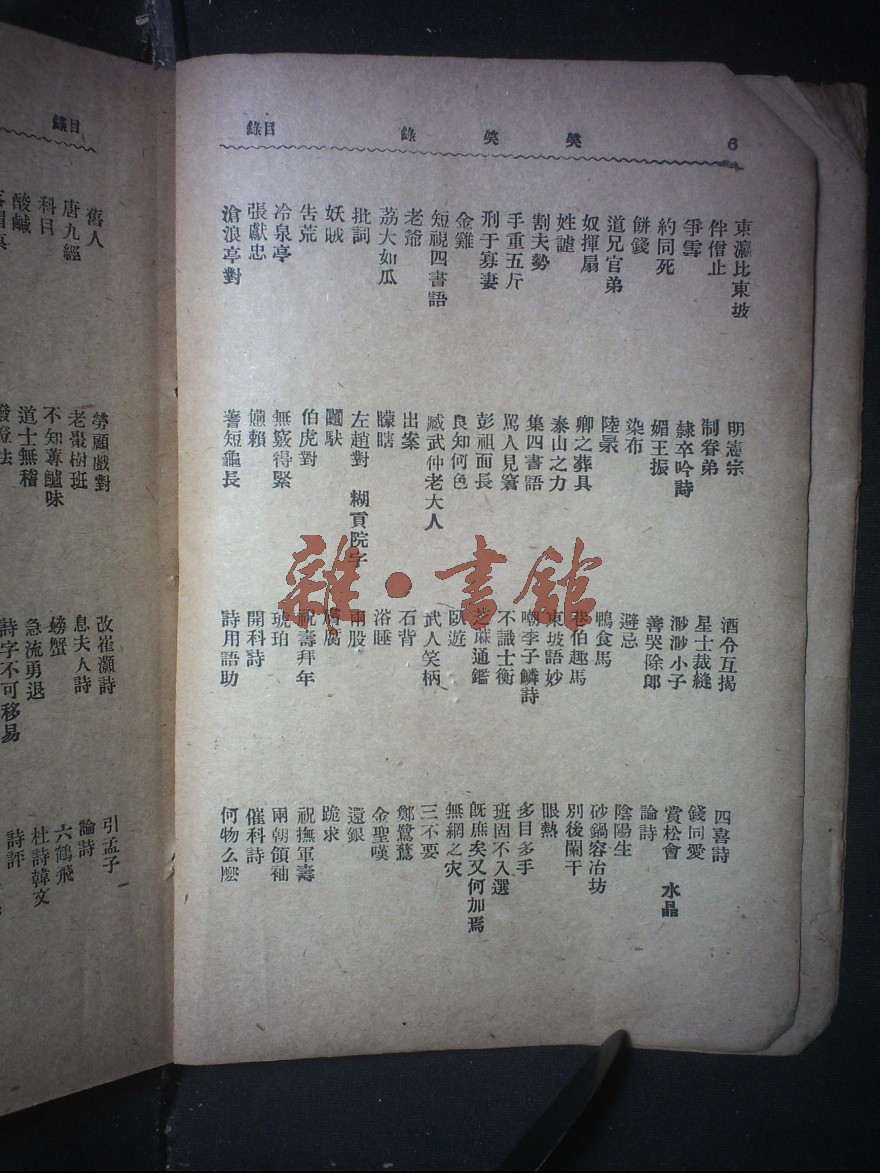 6
笑笑錄
目錄
東瀛比東坡
伴僧止
爭雪
約同死
餅錢
道兄官弟
奴揮扇
姓謔
割夫勢
手重五斤
刑于寡妻
金雞
短視四書語
老爺
荔大如瓜
批詞
妖賊
告荒
冷泉亭
張獻忠
滄浪亭對
明憲宗
制眷弟
隸卒吟詩
媚王振
染布
陸㬅
卿之葬具
泰山之力
集四書語
罵人見窘
彭祖面長
良知何色
臧武仲老大人
出案
矇瞎
左趙對 糊貢院字
伯虎對
無竅得緊
㒙賴
蓍短龜長
酒令互揭
星士裁縫
渺渺小子
善哭除郎
避忌
鴨食馬
巷伯趣馬
東坡語妙
嘲李子鱗詩
不識士衡
芝麻通鑑
臥遊
武人笑柄
石背
浴睡
兩股
腐
祝壽拜年
琥珀
開科詩
詩用語助
四喜詩
錢同愛
賞松會 水晶
論詩
陰陽生
砂鍋容冶坊
別後闌干
眼熱
多目多手
班固不入選
旣庶矣又何加焉
無網之灾
三不要
鄭鷺鶿
金聖嘆
還銀
跪求
祝撫軍壽
兩朝領袖
催科詩
何物么麽
目錄
舊人
唐九經
科目
酸鹹
勞顧戲對
老棗樹班
不知蓴鱸味
道士無稽
改崔灝詩
息夫人詩
螃蟹
急流勇退
詩字不可移易
引孟子
論詩
六鶴飛
杜詩韓文
詩評
雜·書館